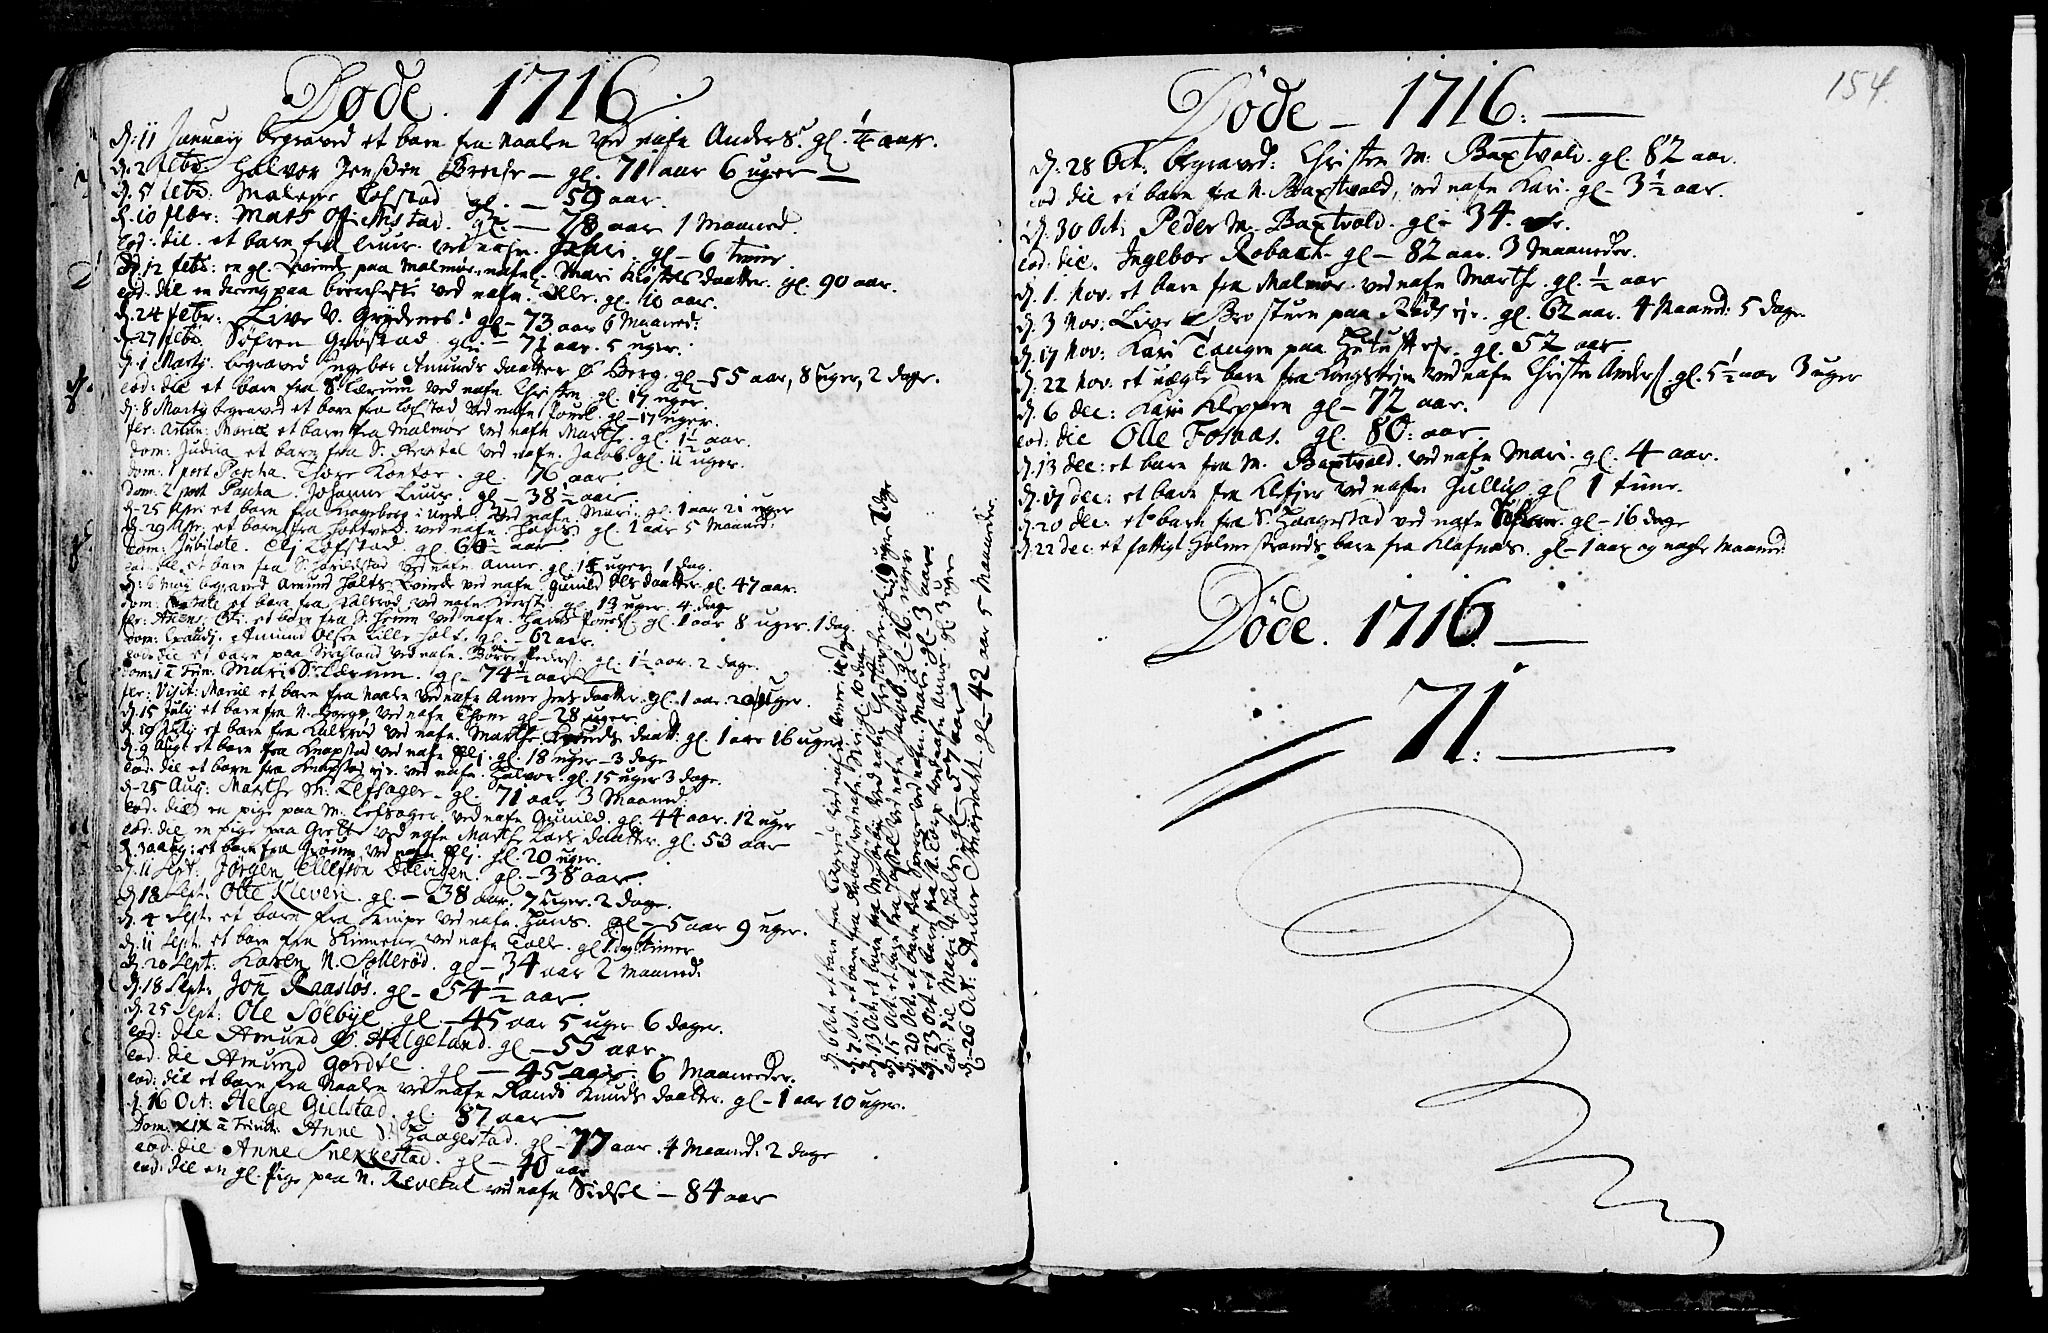 Døde. 1716.
d: 11 January begraved et barn fra Naalen ved nafn Anders. gl. 1/4 aar.
d. 2 febr: Halvor Jenssen Breche — gl. 71 aar 6 uger —
d. 5 febr: Malene Lofstad gl. — 59 aar.
d. 10 febr: Mats Ø: Nistad. gl. — 78 aar 1 Maaned.
eod: die. et barn fra Luur ved nafn. gl — 6 timer
d. 12 febr: en gl. Qvinde paa Malmør, nafnl. Mari daatter. gl. 90 aar.
eod: die en dreng paa ved nafn. Olle. gl. 10 aar.
d. 24 febr: Live V. Grydenes. gl — 73 aar 6 Maaned:
d. 27 febr: Søfren Grøstad. gl. — 71 aar. 5 uger.
d. 1 Marty. begraved Ingebor Amunds daatter Ø Berg. gl — 55 aar, 8 uger, 2 dage.
eod: die et barn fra S: Lærum ved nafn Christen gl. 17 uger.
d. 8 Marty begraved et barn fra Lofstad ved nafn Jonet. gl — 17 uger.
fer: Anun: Mariæ et barn fra Malmør ved nafn Marthe. gl. 1 1/2 aar.
dom: Judica et barn fra S: ved nafn Jacob gl. 11 uger.
dom: 1 post Pascha. Thore Kontor. gl. 76 aar.
dom: 2 post Pascha. Johanne Luur. gl — 38 1/2 aar
d. 25 Apr: et barn fra ved nafn. Mari. gl. 1 aar 21 uger
d. 29 Apr. et barn fra ved nafn. Hans gl. 1 aar 5 Maaned:
dom: Jubilate. Eli Lofstad. gl. 60 1/2 aar
eod: die et barn fra S: ved nafn Anne. gl 15 uger 1 dag.
d. 6 Maij begraved Amund Holts Qvinde ved nafn Gunild Ols daatter gl. 47 aar.
dom: et barn fra Kalsrød ved nafn Kirsti gl. 13 uger. 4 dage
fer: Ascens: Xsti: et barn fra S: Hem ved nafn. Hans gl. 1 aar 8 uger. 1 dag
dom: Exaudi, Amund Olsen Lille Holt. gl. — 62 aar.
eod: die et barn paa ved nafn. Børre Peders: gl. 1 1/2 aar. 2 dage.
dom: 1 a Trin. Mari S: Lærum. gl — 74 1/2 aar
fer: Visit: Mariæ et barn fra Naalen ved nafn Anne Jens daatter. gl. 1 aar. uger.
d. 15 July et barn fra N. Borge ved nafn Thone gl — 28 uger.
d. 19 July et barn fra Kalsrød ved nafn. Marthe daatt: gl. 1 aar 16 uger
d. 9 Aug: et barn fra Knapstad ved nafn Eli. gl. 18 uger — 3 dage
eod: die et barn fra Knapstad eje. ved nafn. Halvor. gl. 15 uger 3 dage.
d. 25 Aug: Marthe M: Lefsager. gl. 71 aar. 3 Maaned:
eod: die en pige paa M. Lefsager. ved nafn Gunild. gl. 44 aar. 12 uger
eod: die en pige paa ved nafn Marthe Lars daatter. gl. 53 aar
d. 30 Aug: et barn fra Grøum ved nafn Eli. gl. 20 uger.
d. 11 Sept: Jørgen Ellefsøn gl. — 38 aar.
d. 18 Sept: Otte Kleven. gl. — 38 aar. 7 uger. 2 dage.
d. 4 Sept: et barn fra Kempe ved nafn. Hans. gl. — 5 aar 9 uger.
d. 11 Sept: et barn fra ved nafn Tolle. gl 1 dag timer
d. 20 Sept: Karen N. Sollerød. gl — 34 aar 2 Maaned:
d. 18 Sept: Jon Raasløs. gl — 54 1/2 aar.
d. 25 Sept: Ole Solbye. gl. — 45 aar 5 uger 6 dager.
eod: die Amund Ø. Helgeland. gl — 55 aar.
eod: die Amund gl — 45 aar: 6 Maaneder.
eod: die et barn fra Naalen ved nafn Randi Knuds daatter. gl — 1 aar 10 uger.
d. 16 Oct: Helge Gielstad. gl. 87 aar
Dom: XIX a Trinit: Anne S. Haagestad. gl — 77 aar. 4 Maaned: 2 dage
eod: die Anne Snekkestad. gl — 40 aar
eod: die en gl. Pige paa N. Revetal ved nafn Sidsel — 84 aar
d. 6 Oct et barn fra ved nafn
d. 7 Oct. et barn fra Robach ved nafn. Siri gl. 10 dage
d. 13 Oct. et barn fra M: Sørby ved nafn gl. 19 uger dage
d. 15 Oct. et barn fra ved nafn Jacob. gl. 16 uger
d. 20 Oct. et barn fra ved nafn. Mari. gl. 3 aar
d. 23 Oct et barn fra ved nafn Anne. gl. 3 uger
eod: die Mari V: Hals. gl — 57 aar
d. 26 Oct: Anne gl — 42 aar 5 Maaneder.
154.
Døde — 1716: —
d. 28 Oct: begraved: Christen M: Baxtvald. gl. 82 aar.
eod die et barn fra N. Baxtvald, ved nafn Kari. gl — 3 1/2 aar.
d. 30 Oct: Peder M. Baxtvald. gl — 34. aar.
eod: die. Ingebor Robach. gl — 82 aar. 3 Maaneder.
d. 1. Nov. et barn fra Malmør. ved nafn Marthe. gl. 1/2 aar
d. 3 Nov: Live Brosteen paa Røds eje. gl. 62 aar. 4 Maaned: 5 dage
d. 17 Nov: Kari Tangen paa eje. gl. 52 aar
d. 22 Nov. et uægte barn fra ved nafn Christen Anders: gl. 5 1/2 aar 3 uger
d. 6 dec: Kari Kleppen gl — 72 aar.
eod: die Olle Fosnas. gl. 80: aar.
d. 13 dec: et barn fra M. Baxtvald. ved nafn Mari. gl. 4 aar.
d. 17 dec: et barn fra ved nafn gl 1 time.
d. 20 dec: et barn fra S. Haagestad ved nafn gl — 16 dage
d. 22 dec: et fattigt Holmestrands barn fra Klafnas. gl — 1 aar og nogle Maaned:
Døde. 1716. —
71: —